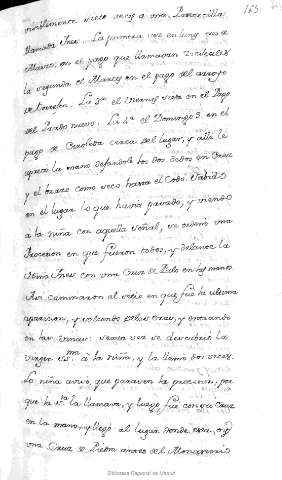 165
visiblemente siete veces a una Pastorcilla
llamada Ines. La primera vez en lunes tres de
Marzo, en el pago que llamavan
la segunda el Martes en el pago del arroyo
de Torrejon. La 3ª el viernes en el Pago
del Prado nuevo. La 4ª el Domingo 9. en el
pago de cerca del lugar, y alli le
apretó la mano dejandola los dos dedos en Cruz
y el brazo como seco hasta el Codo. Sabido
en el lugar lo que havia pasado, y viendo
a la niña con aquella señal, se ordenó una
Procesion en que fueron todos, y delante la
Niña Ines con una Cruz de Palo en las manos.
Asi caminaron al sitio en que fue la ultima
aparicion, y volviendo de las eras, y entrando
en las viñas: sexta vez se descubrió la
Virgen SSma. á la niña, y la llamó dos veces.
La niña avisó, que parasen la procesion, por
que la Sra. la llamava, y luego fue con esa Cruz
en la mano, y llegó al lugar donde esta, oy
una Cruz de Piedra antes del Monasterio
Biblioteca Regional de Madrid